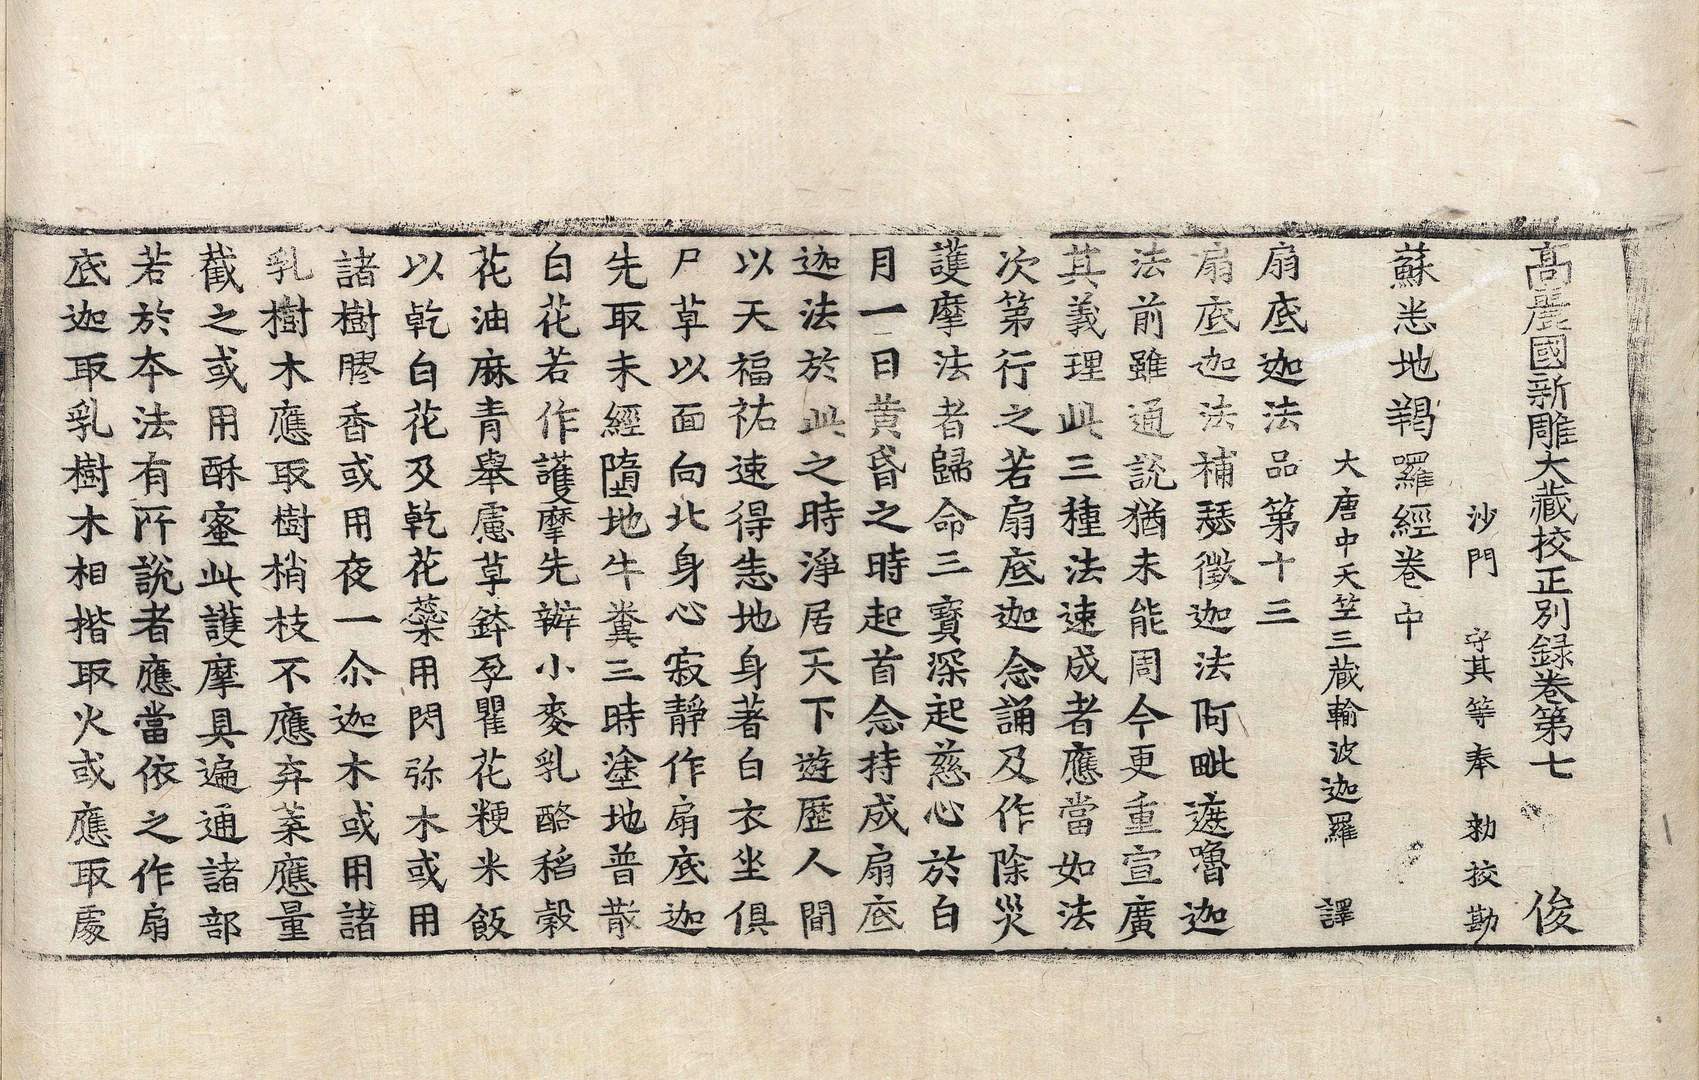 高麗國新雕大藏校正別錄卷第七 俊
沙門 守其等奉 勑校勘
蘇悉地羯羅經卷中
大唐中天竺三藏輸波迦羅 譯
扇底迦法品第十三
扇底迦法補瑟徵迦法阿毗遮嚕迦
法前雖通說猶未能周今更重宣廣
其義理此三種法速成者應當如法
次第行之若扇底迦念誦及作除災
護摩法者歸命三寶深起慈心於白
月一日黃昏之時起首念持成扇底
迦法於此之時淨居天下遊歷人間
以天福祐速得悉地身著白衣坐俱
尸草以面向北身心寂靜作扇底迦
先取未經墮地牛糞三時塗地普散
白花若作護摩先辦小麥乳酪稻穀
花油麻青舉慮草鉢孕瞿花粳米飯
以乾白花及乾花蘂用閃弥木或用
諸樹膠香或用夜一尒迦木或用諸
乳樹木應取樹梢枝不應弃葉應量
截之或用酥蜜此護摩具遍通諸部
若於本法有所說者應當依之作扇
底迦取乳樹木相揩取火或應取處